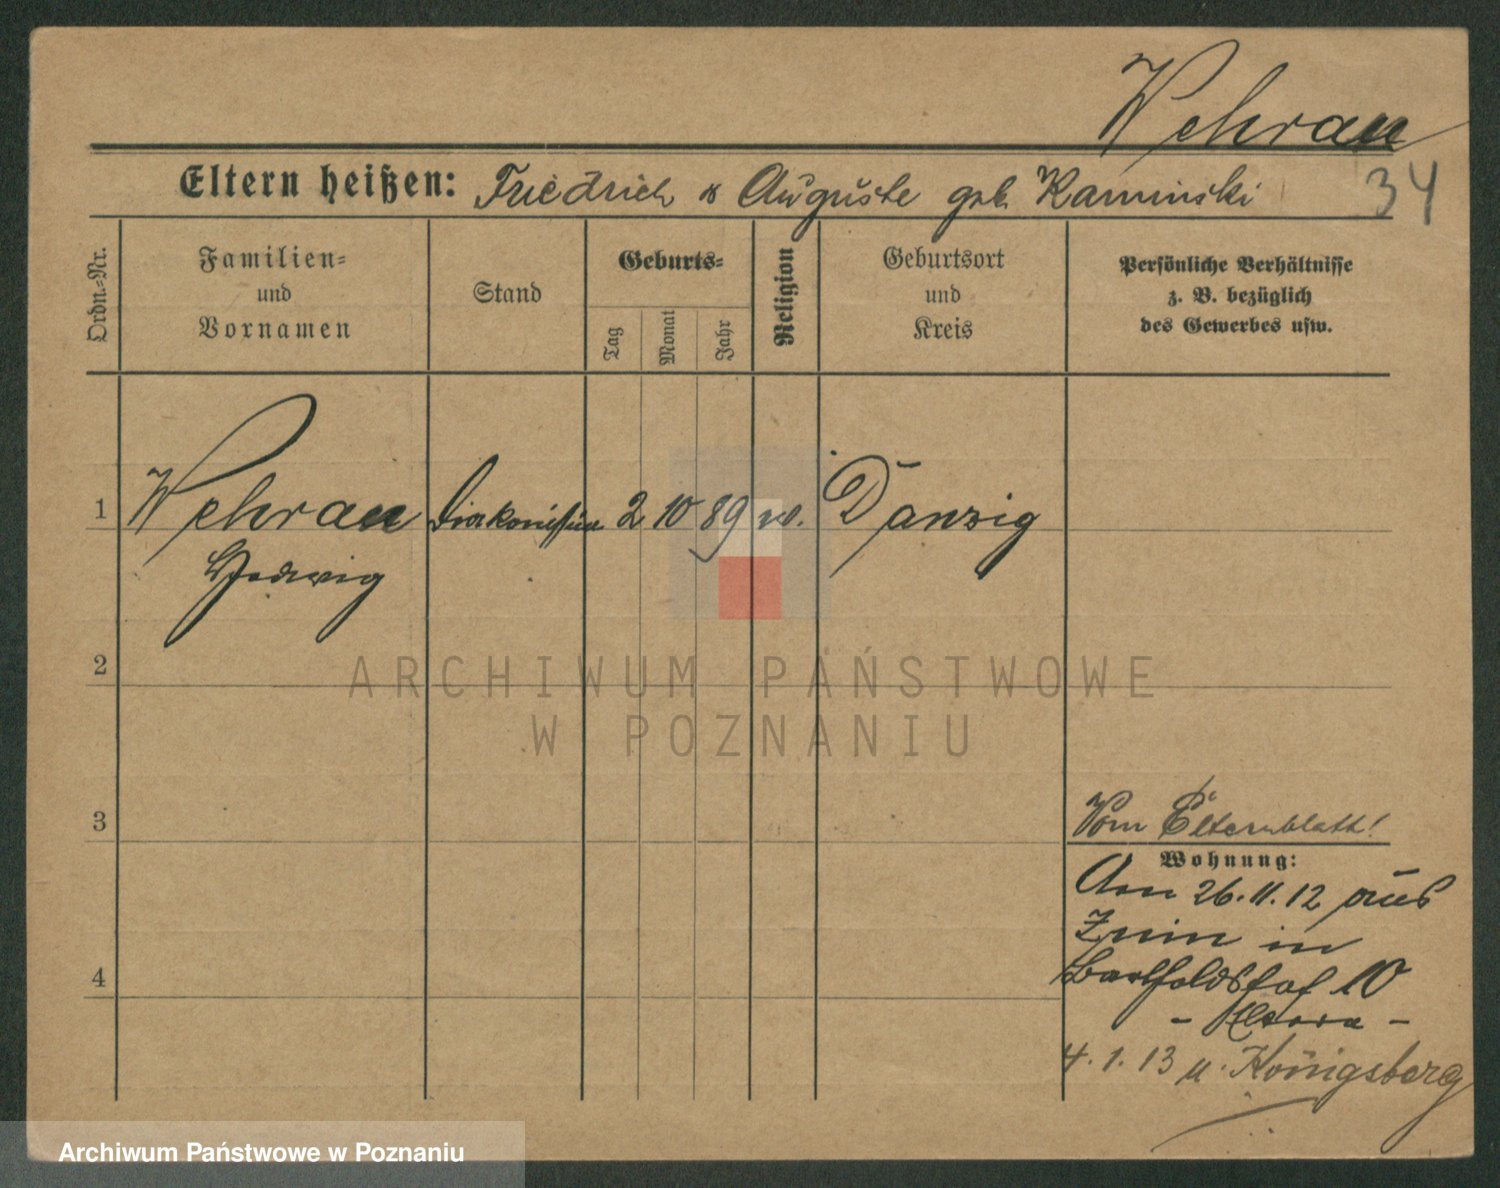 Wehrau
Eltern heißen: Friedrich & Auguste geb. Kaminski 34
Ordn.-Nr.
Familien-
und
Vornamen
Stand
Geburts-
Tag
Monat
Jahr
Religion
Geburtsort
und
Kreis
Persönliche Verhältnisse
z. B. bezüglich
des Gewerbes usw.
1 Wehrau Diakonissin 2 10 89 ev. Danzig
Hedwig
2
3
Vom Elternblatt!
Wohnung:
Am 26.11.12 aus
Znin in
10
4
4.1.13 n. Königsberg
ARCHIWUM PAŃSTWOWE
W POZNANIU
Archiwum Państwowe w Poznaniu